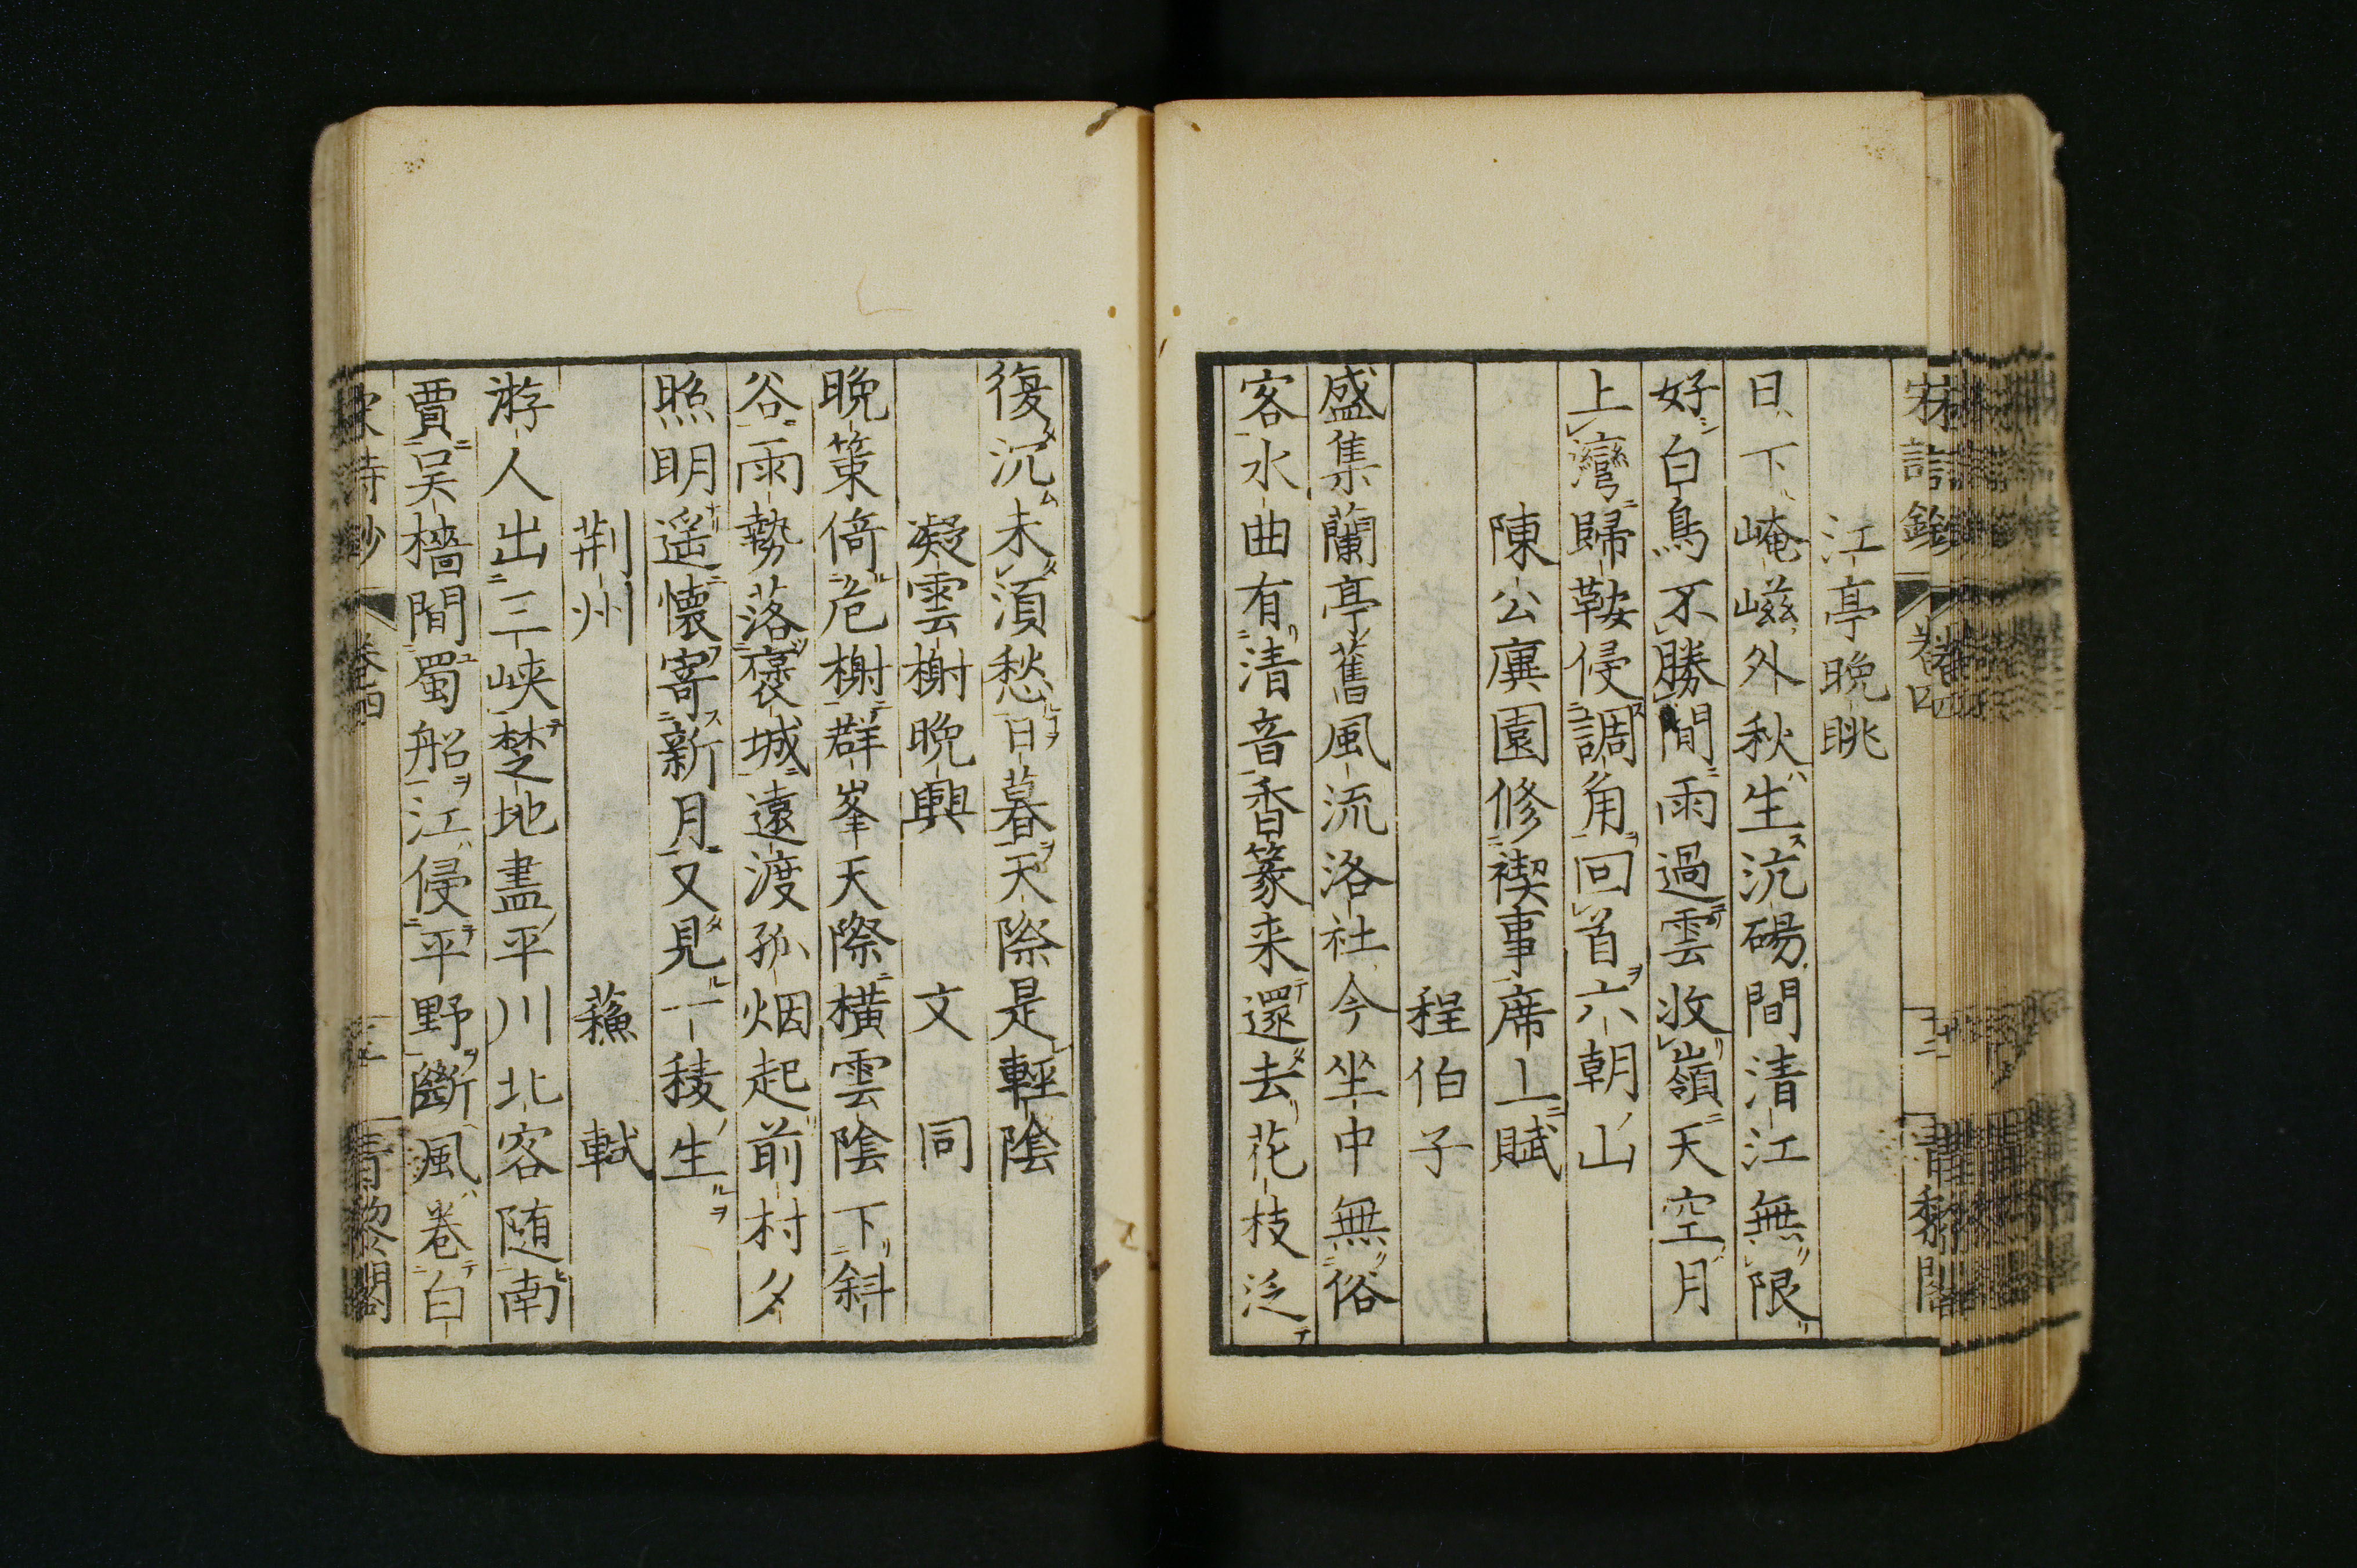 江亭晩眺
日下崦嵫外秋生沆碭間清江無限
好白鳥不勝閒雨過雲收嶺天空月
上灣歸鞍侵調角回首六朝山
陳公廙園修禊事席上賦
程伯子
盛集蘭亭舊風流洛社今坐中無俗
客水曲有清音香篆来還去花枝泛
復沉未須愁日暮天際是輕陰
凝雲榭晩興 文同
晩策倚危榭群峯天際橫雲陰下斜
谷雨勢落褒城遠渡孤烟起前村夕
照明遥懷寄新月又見一稜生
荆州 蘓軾
游人出三峡楚地盡平川北客随南
賈吴檣間蜀船江侵平野斷風卷白
宋詩鈔 卷四 青藜閣